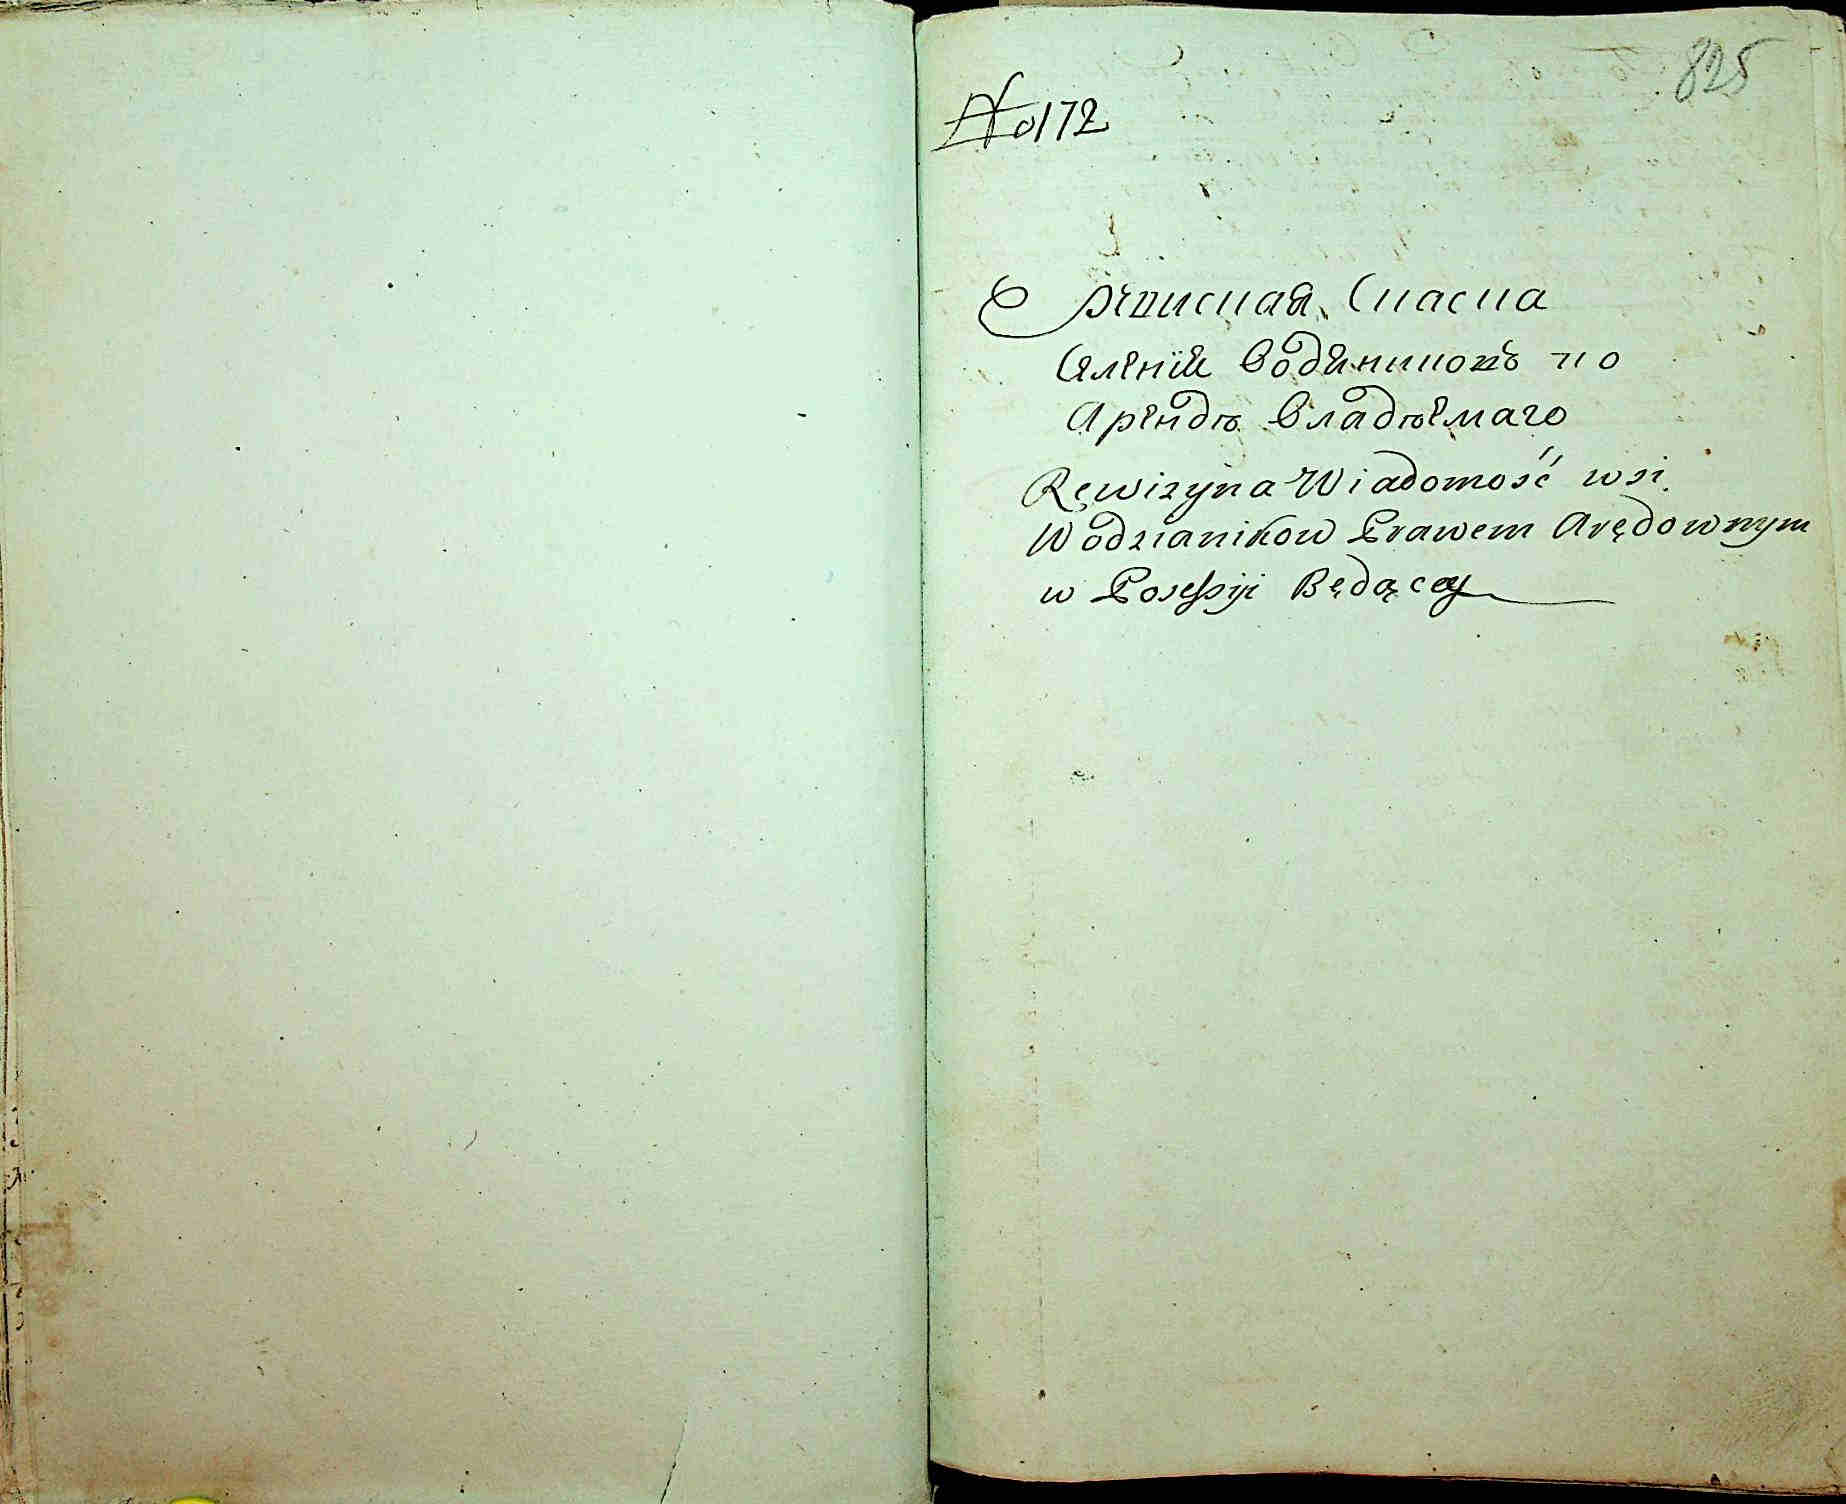 825
No 172
Ревизская Сказка
Селения Водяниковъ по
Арендѣ Владѣемаго
Rewizyina Wiadomość wsi
Wodzianikow Prawem Arędownym
w Posessyi Będącey